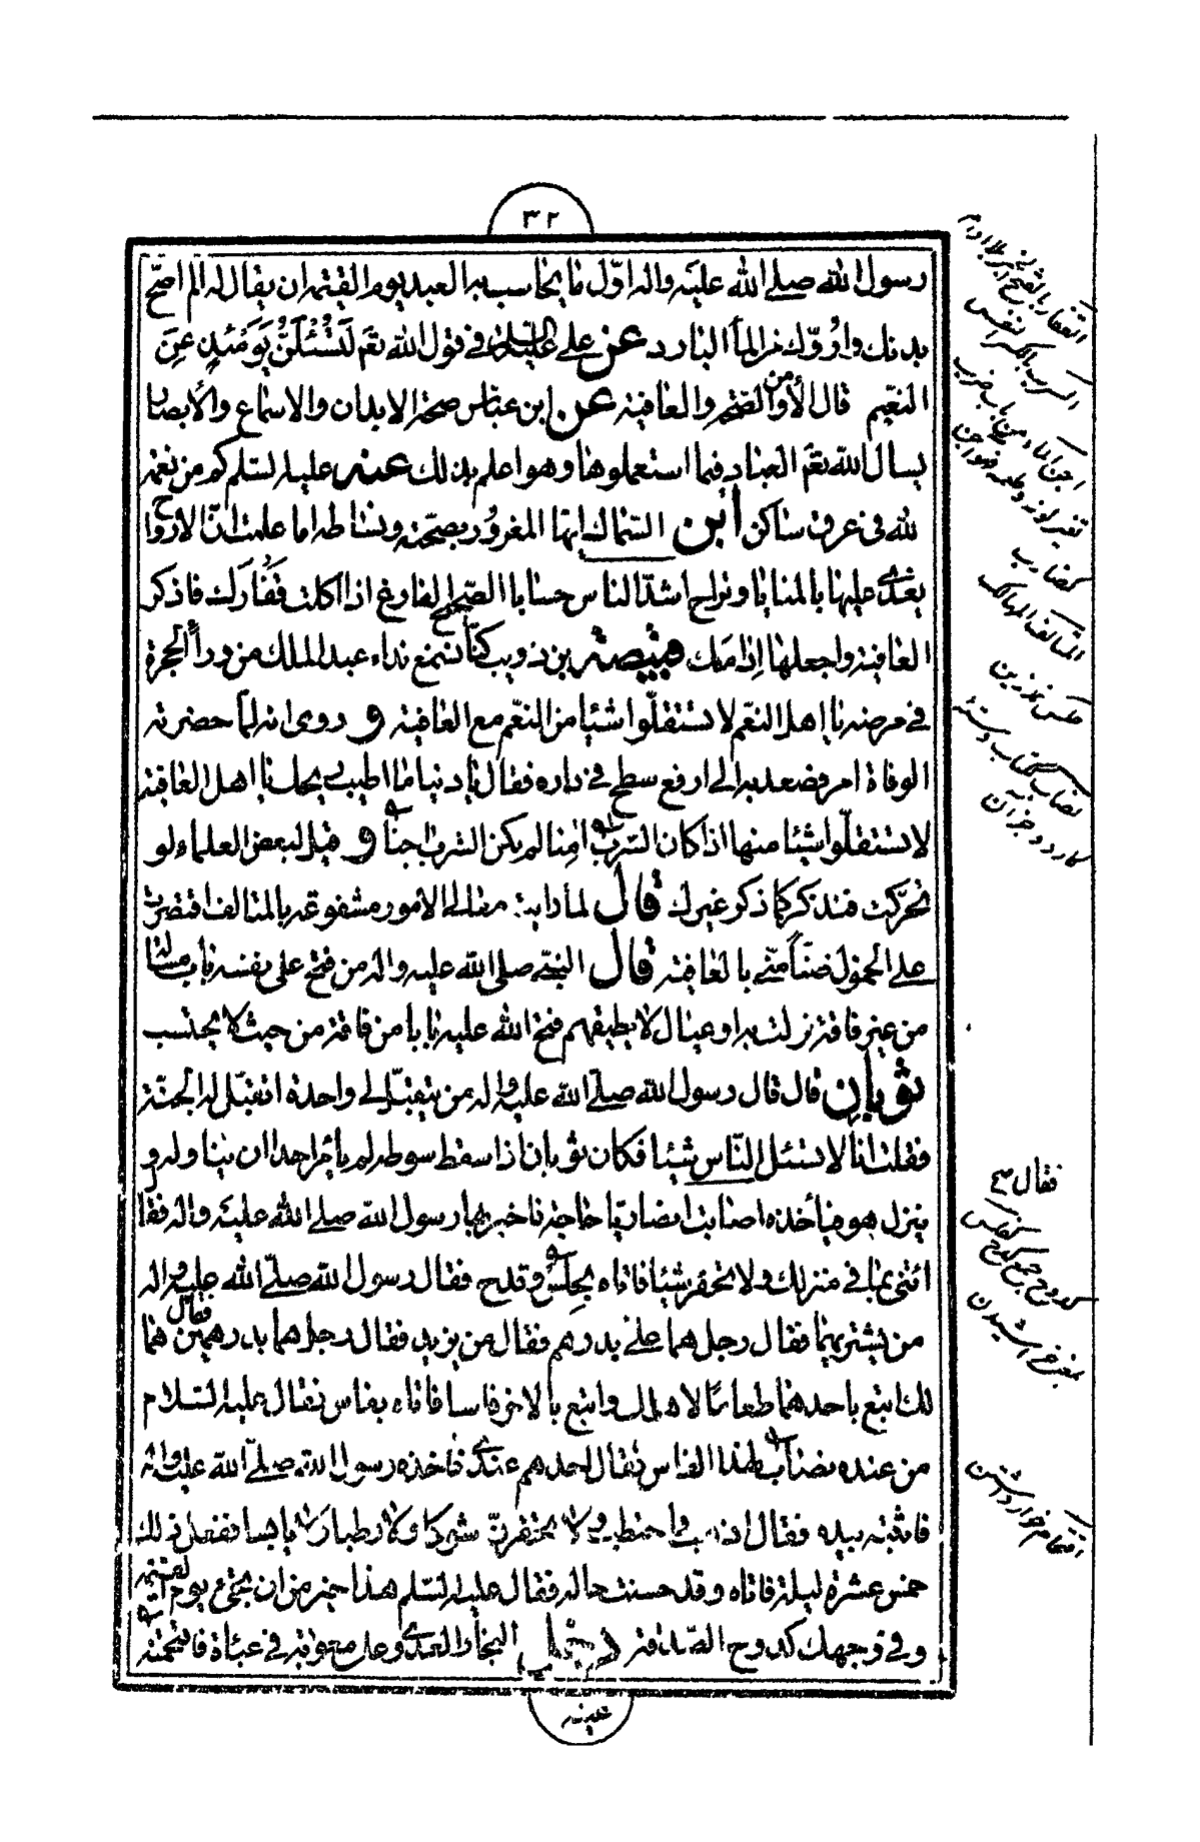 ٣٢
رسول الله صلى الله عليه واله اوّل ما يحاسب به العبد يوم القيمة ان يقال له الم اصحّ
بدنك واروّك من الماء البارد عن علي عليه السلام في قول الله تعم لَتُسْئَلُنَّ يَوْمَئِذٍ عَنِ
النعيم قال الأمن والصحة والعافية عن ابن عباس صحة الابدان والاسماع والأبصار
يسال الله تعم العباد فيما استعملوها وهو اعلم بذلك عنه عليه السلم كم من نعمة
لله في عرق ساكن ابن السماك ايها المغرور بصحّته ونشاطه اما علمت انّ الارواح
يغدى عليها بالمنايا ويراح اشدّ الناس حسابا الصحيح الفارغ اذا اكلت قفارك فاذكر
العافية واجعلها إدامك قبيصة بن ذويب كنّا نسمع نداء عبد الملك من وراء الحجرة
في مرضه يا اهل النعم لا تستقلّوا شيئا من النعم مع العافية و روى انه لما حضرته
الوفاة امر فصعد به الى ارفع سطح في داره فقال يا دنيا ما اطيب ريحك يا اهل العافية
لا تستقلّوا شيئا منها اذا كان السرب امنا لم يكن الشرب اجنا و قيل لبعض العلماء لو
تحرّكت فتذكر كما ذكر غيرك قال لما رايت معالي الامور مشفوعة بالمتالف اقتصرت
على الخمول ضنّاً منّي بالعافية قال النبي صلى الله عليه واله من فتح على نفسه باب مسئلة
من غير فاقة نزلت به او عيال لا يطيقهم فتح الله عليه بابا من فاقة من حيث لا يحتسب
ثوبان قال قال رسول الله صلى الله عليه واله من يتقبّل لي واحدة اتقبّل له الجنّة
فقلت انا لا تسئل النّاس شيئا فكان ثوبان اذا سقط سوطه لم يأمر احدا ان يناوله و
ينزل هو فيأخذه اصابت انصاريّا حاجة فاخبر بها رسول الله صلى الله عليه واله فقا
ائتني بما في منزلك ولا تحقر شيئا فاتاه بحلس وقدح فقال رسول الله صلّى الله عليه واله
من يشتريهما فقال رجل هما علي بدرهم فقال من يزيد فقال رجل هما بدرهمين فقال هما
لك ابتع باحدهما طعاما لاهلك وابتع بالاخر فاسا فاتاه بفاس فقال عليه السلام
من عنده نصاب لهذا الفاس فقال احدهم عندي فاخذه رسول الله صلّى الله عليه واله
فاثبته بيده فقال اذهب واحتطب ولا تحتقرنّ شوكا ولا رطبا ولا يابسا ففعل ذلك
خمس عشرة ليلة فاتاه وقد حسنت حاله فقال عليه السلم هذا خير من ان تجيء يوم القيمة
وفي وجهك كدوح الصّدقة دخل البخار العدي وعلى معوية في عباة فاقتحمته
عينه
السرب بالكسر النفس
فقال م
كدوح جمع كدح
اقتحام خوار داشتن